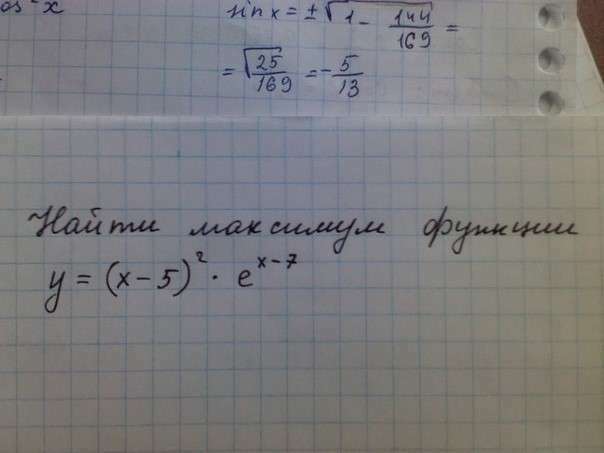 sin x = ± √1 - 144/169 =
= √25/169 = - 5/13
Найти максимум функции
y = (x-5)² · e^(x-7)